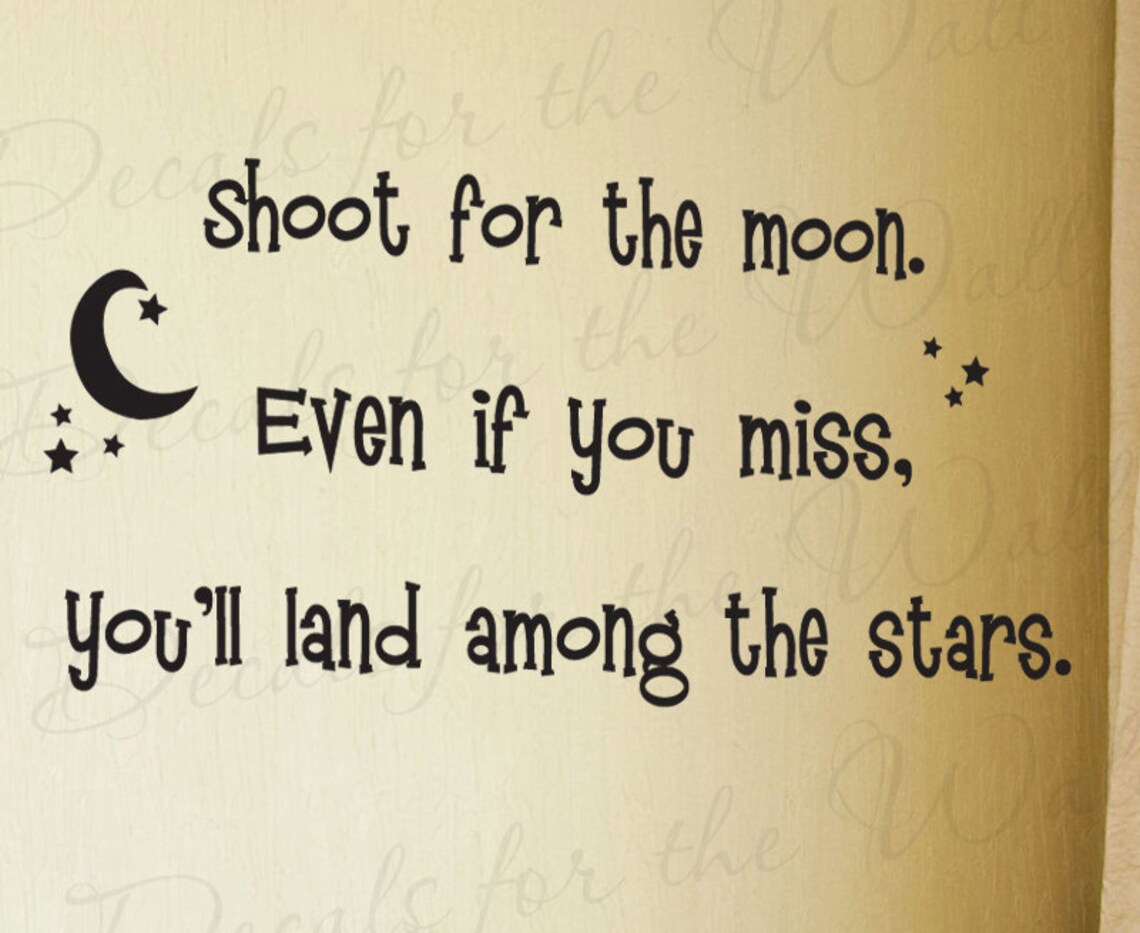 Decals for the Wall
Shoot for the moon.
Decals for the Wall
Even if you miss,
Decals for the Wall
you'll land among the stars.
Decals for the Wall